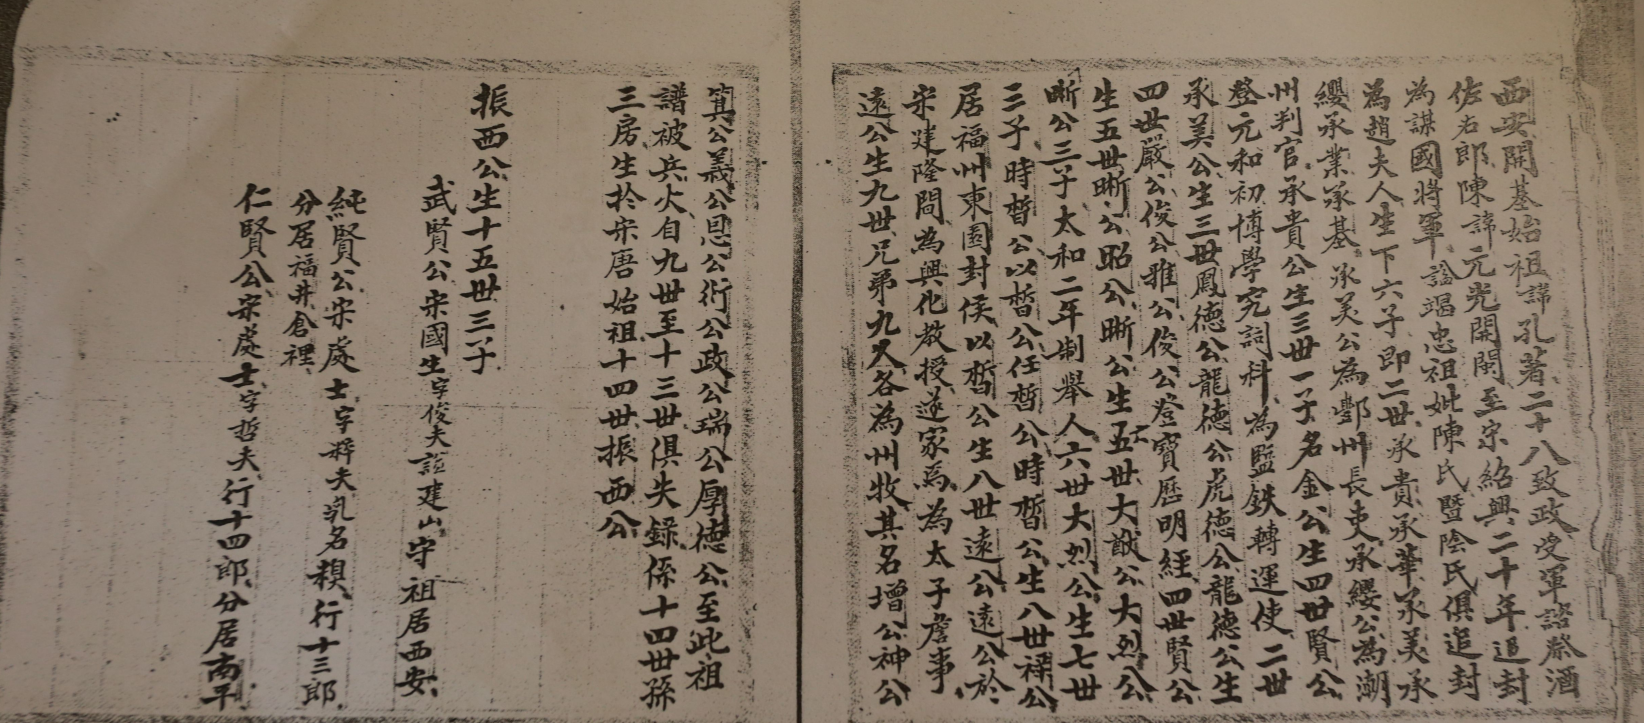 西安開基始祖諱孔著二十八致政受軍諮祭酒
佐右郎陳諱元光開閩至宗紹興二十年追封
為謀國將軍謚竭忠祖妣陳氏暨陰氏俱追封
為趙夫人生下六子即二世承貴承華承美承
纓承業承基承美公為酆州長吏承纓公為潮
州判官承貴公生三世一子名金公生四世賢公
登元和初博學究詞科為監鉄轉運使二世
承美公生三世鳳德公龍德公虎德公龍德公生
四世嚴公俊公雅公俊公登寶歷明經四世賢公
生五世晰公昭公晰公生五六世大猷公大烈公
晰公三子太和二年制舉人六世大烈公生七世
三子時晳公以晳公任晳公時晳公生八世禤公
居福州東園封侯以晳公生八世遠公遠公於
宋建隆間為興化教授遂家焉為太子詹事
遠公生九世兄弟九人各為州牧其名增公神公
箕公義公恩公衍公政公瑞公厚德公至此祖
譜被兵火自九世至十三世俱失錄係十四世孫
三房生於宋唐始祖十四世振西公
振西公生十五世三子
武賢公宋國生字俊夫謚建山守祖居西安
純賢公宋處士字粹夫乳名積行十三郎
分居福井倉裡
仁賢公宋處士字哲夫行十四郎分居南平